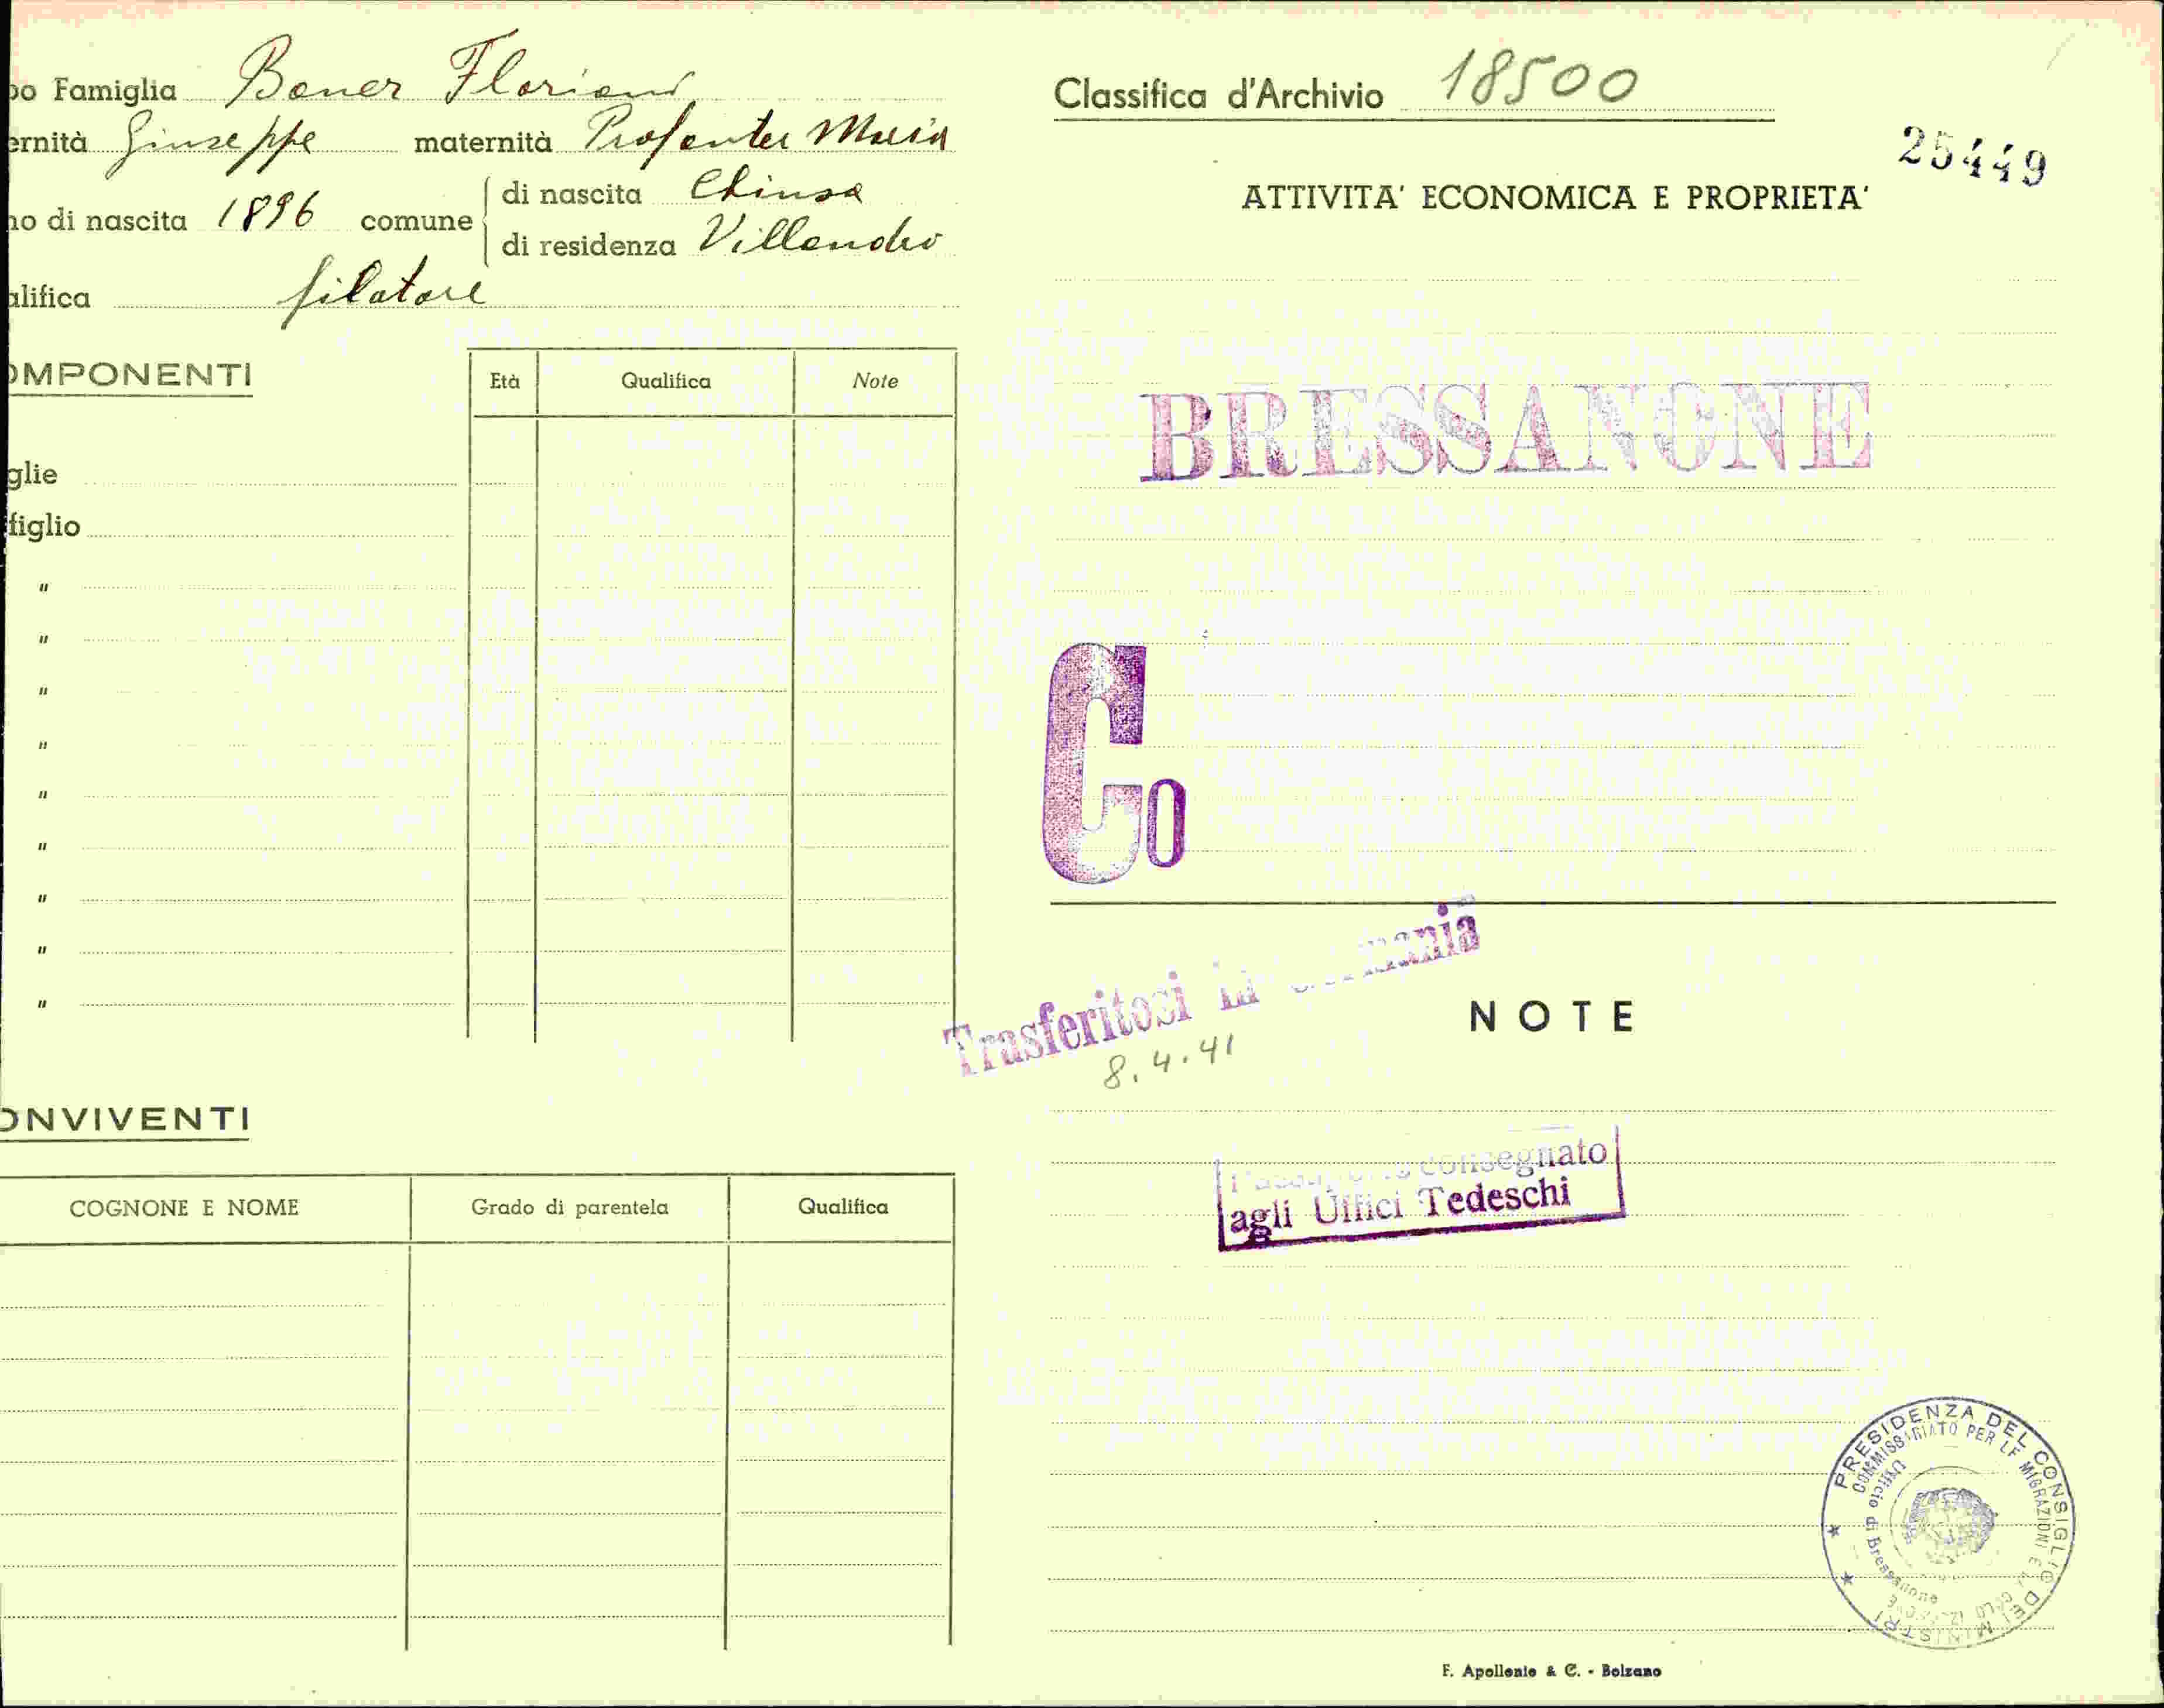 po Famiglia Boner Floriano
ernità Giuseppe maternità Profanter Maria
no di nascita 1896 comune di nascita Chiusa
di residenza Villandro
alifica filatore
OMPONENTI
Età Qualifica Note
glie
figlio
"
"
"
"
"
"
"
"
"
ONVIVENTI
COGNONE E NOME Grado di parentela Qualifica
Classifica d'Archivio 18500
25449
ATTIVITA' ECONOMICA E PROPRIETA'
BRESSANONE
Co
Trasferitosi in Germania
8.4.41
NOTE
consegnato
agli Uffici Tedeschi
PRESIDENZA DEL CONSIGLIO DEI MINISTRI
COMMISSARIATO PER LE MIGRAZIONI E LA COLONIZZAZIONE
Ufficio di Bressanone
F. Apollonio & C. - Bolzano